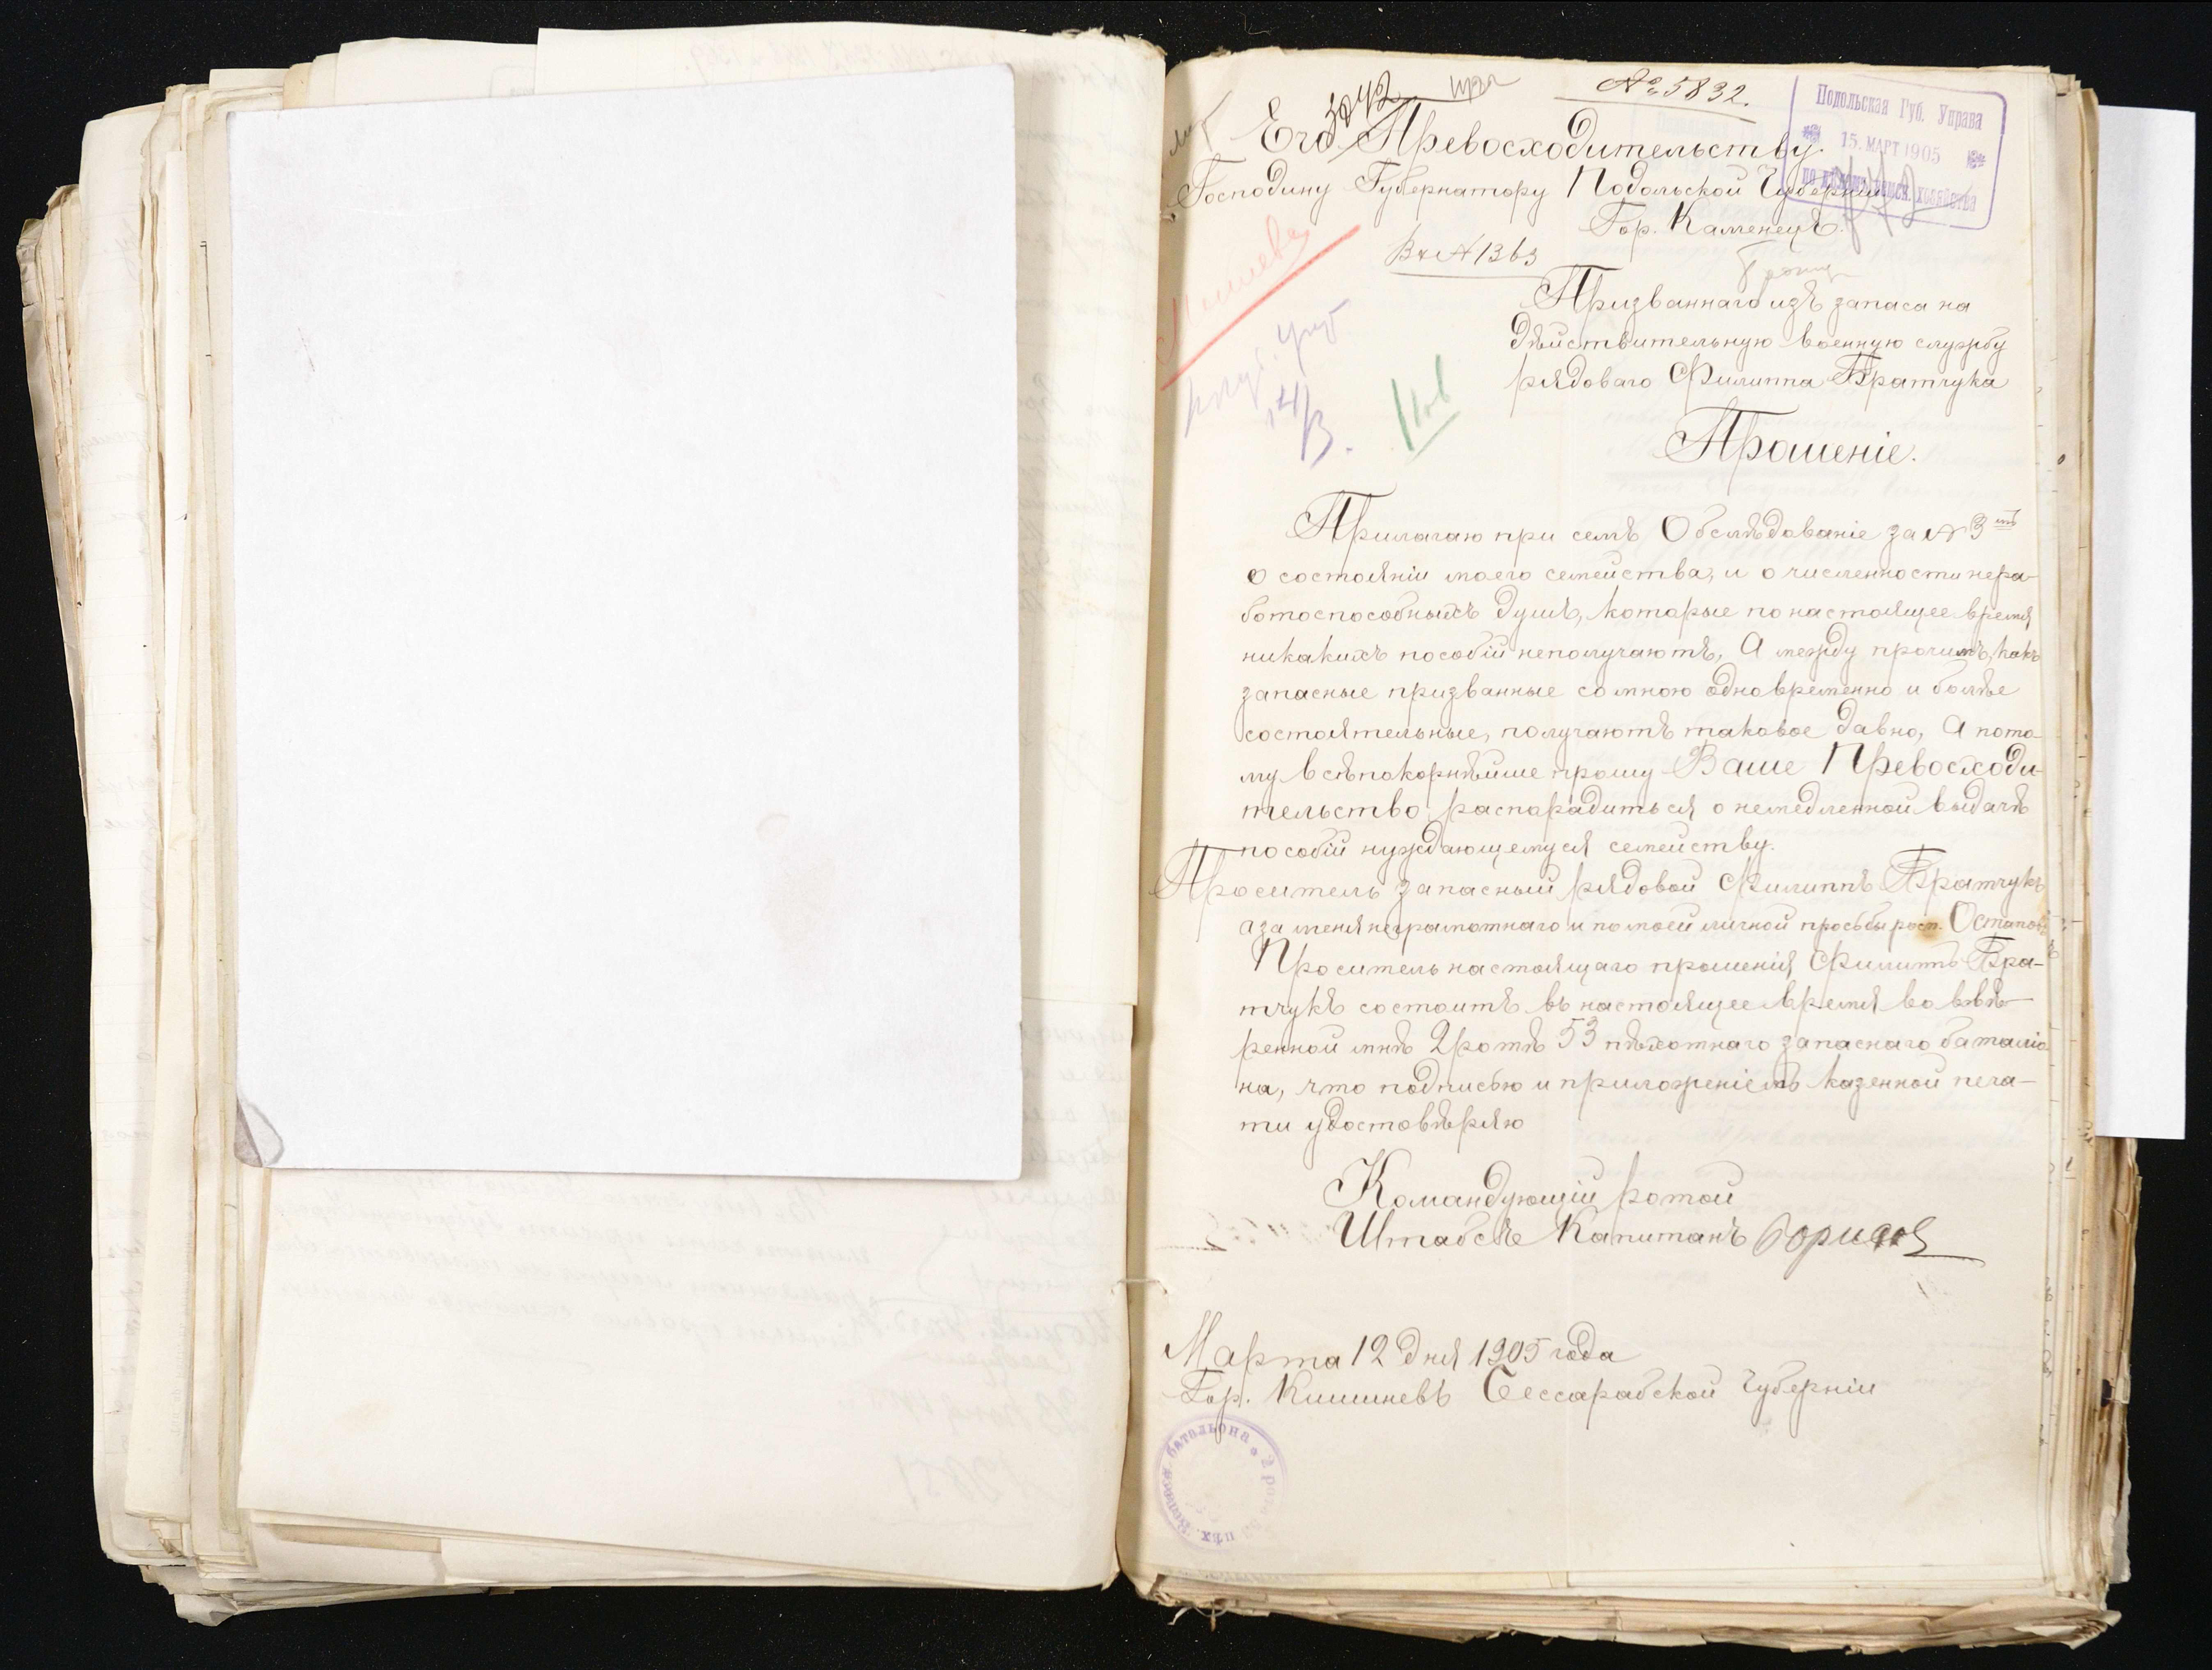 № 5832.
3242
Подольская Губ. Управа
15. МАРТ 1905
хозяйства
Его Превосходительству.
Господину Губернатору Подольской Губерніи
Гор. Каменецъ.
Вх № 1363
Призваннаго изъ запаса на
дѣйствительную военную службу
рядоваго Филиппа Братчука
Прошеніе.
Прилагаю при семъ Обслѣдованіе за № 3
о состояніи моего семейства, и о численности нера-
ботоспособныхъ душъ, которые по настоящее время
никакихъ пособій неполучаютъ, А между прочимъ, какъ
запасные призванные со мною одновременно и болѣе
состоятельные, получаютъ таковое давно, А пото-
му всѣпокорнѣйше прошу Ваше Превосходи-
тельство распорадиться о немедленной выдачѣ
пособій нуждающемуся семейству.
Проситель запасный рядовой Филиппъ Братчукъ
а за меня неграмотнаго и по моей личной просьбы росп. Остапов
Проситель настоящаго прошенія, Филиппъ Бра-
тчукъ состоитъ въ настоящее время во ввѣ-
ренной мнѣ 2 ротѣ 53 пѣхотнаго запаснаго баталіо
на, что подписью и приложеніемъ казенной печа-
ти удостовѣряю
Командующій ротой
Штабсъ Капитанъ Борисов
Марта 12 дня 1905 года
Гор. Кишиневъ Бессарабской губерніи
батальона 2